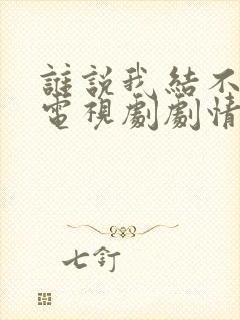 誰說我結不
電視劇劇情
七釘